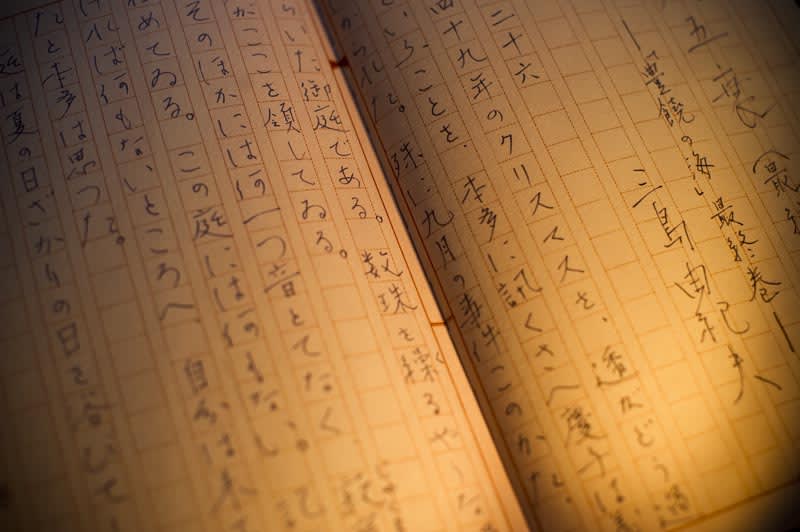 五衰（最終
―「豊饒の海」最終巻―
三島由紀夫
二十六
四十九年のクリスマスを、透はどう過
といふことを、本多に訊くさへ慶子は
かられた。殊に九月の事件このかた、
らいた御庭である。数珠を繰るやうな
がここを領してゐる。
そのほかには何一つ音とてなく、寂
めてゐる。この庭には何もない。記
ければ何もないところへ、自分は来て
たと本多は思つた。
庭は夏の日ざかりの日を浴びてし